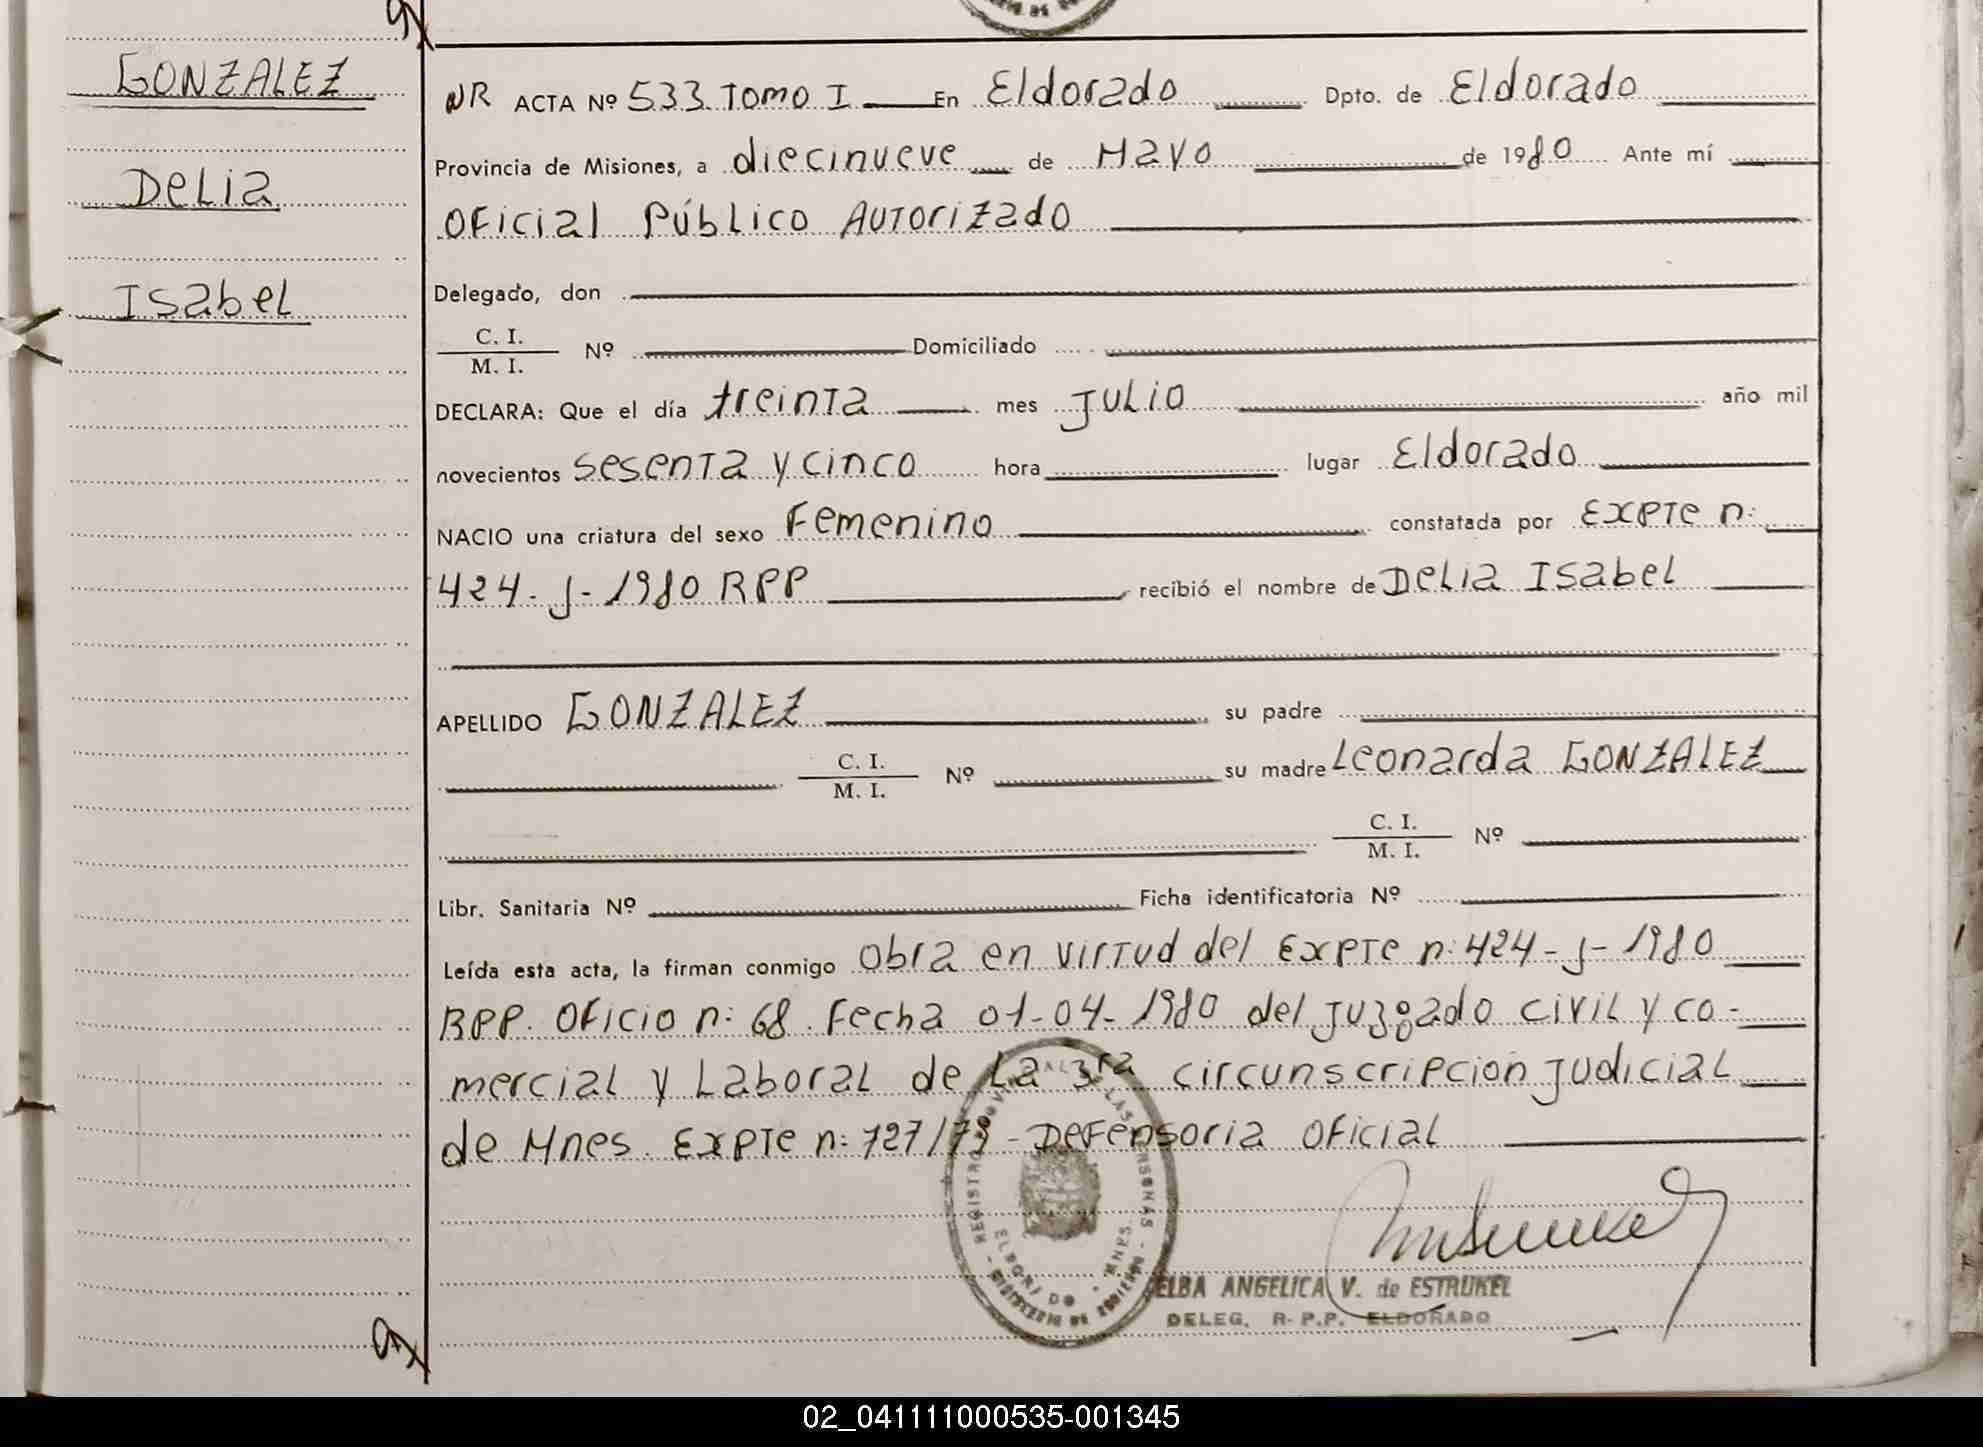 GONZALEZ
Delia
Isabel
NR ACTA Nº 533 Tomo I En Eldorado Dpto. de Eldorado
Provincia de Misiones, a diecinueve de Mayo de 1980 Ante mí
Oficial Público Autorizado
Delegado, don
C. I.
M. I. Nº Domiciliado
DECLARA: Que el día treinta mes Julio año mil
novecientos sesenta y cinco hora lugar Eldorado
NACIO una criatura del sexo Femenino constatada por Expte n:
424-J-1980 RPP recibió el nombre de Delia Isabel
APELLIDO GONZALEZ su padre
C. I.
M. I. Nº su madre Leonarda GONZALEZ
C. I.
M. I. Nº
Libr. Sanitaria Nº Ficha identificatoria Nº
Leída esta acta, la firman conmigo Obra en virtud del Expte n: 424-J-1980
RPP. Oficio n: 68. Fecha 01-04-1980 del Juzgado civil y co-
mercial y Laboral de La 3ra circunscripcion Judicial
de Mnes. Expte n: 727/79 - Defensoria Oficial
ELBA ANGELICA V. de ESTRUKEL
DELEG. R. P.P. ELDORADO
02_041111000535-001345